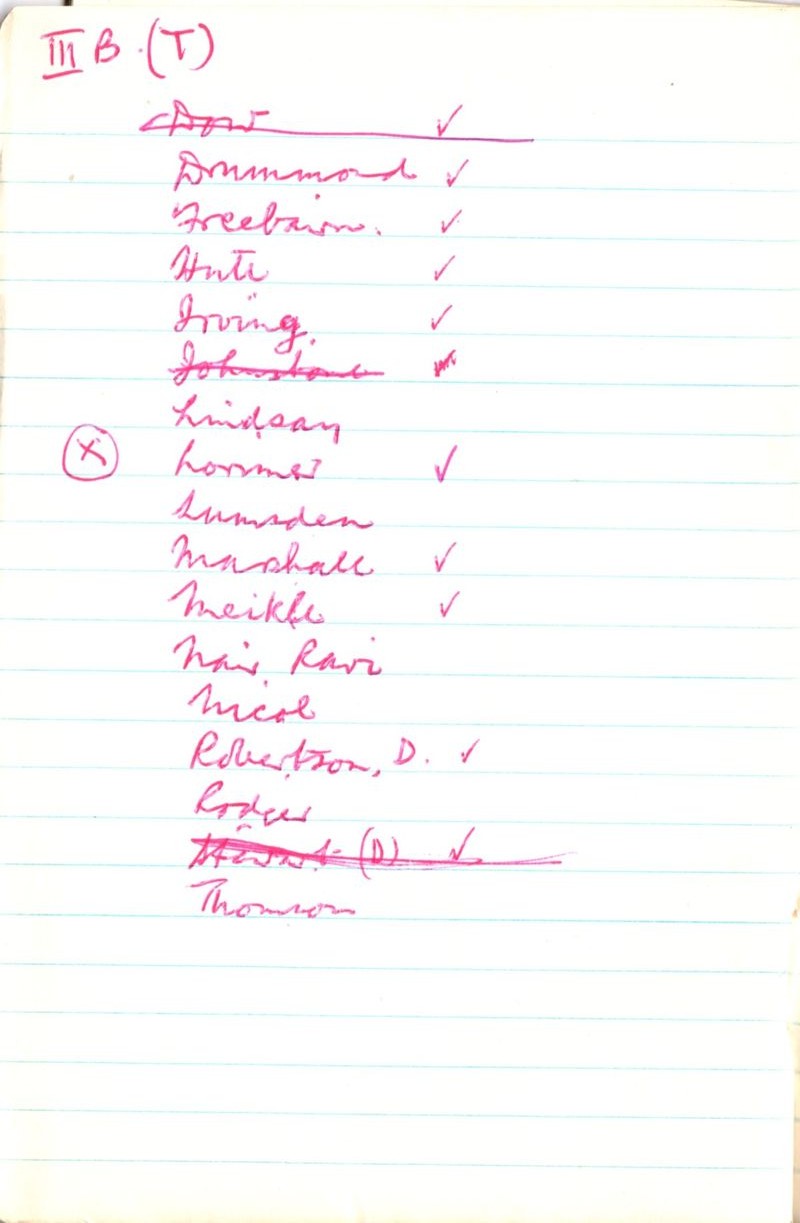 III B. (T)
Dow ✓
Drummond ✓
Freebairn. ✓
✓
Irving. ✓
Johnstone
Lindsay
X Lorimer ✓
Lumsden
Marshall ✓
Meikle ✓
Nair, Ravi
Nicol
Robertson, D. ✓
Rodger
Stewart (D) ✓
Thomson